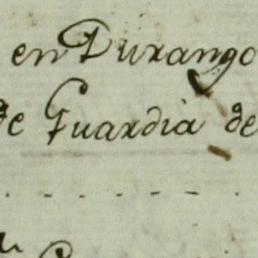 en Durango
de Guardia de